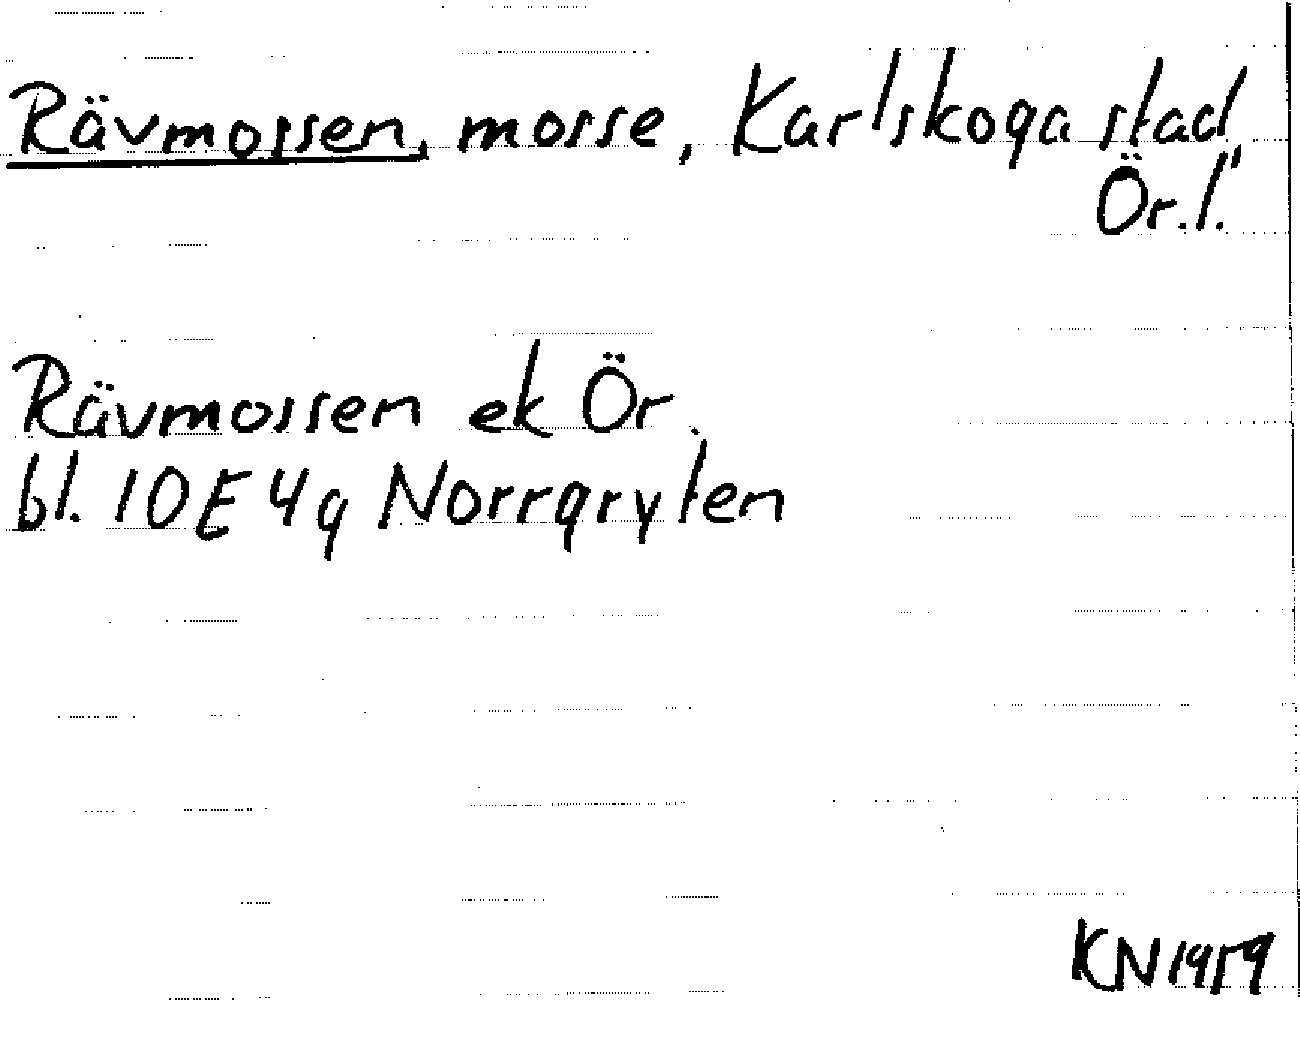 Rävmossen, mosse, Karlskoga stad,
Ör.l.
Rävmossen ek Ör.
bl. 10E 4g Norrgryten
KN 1959